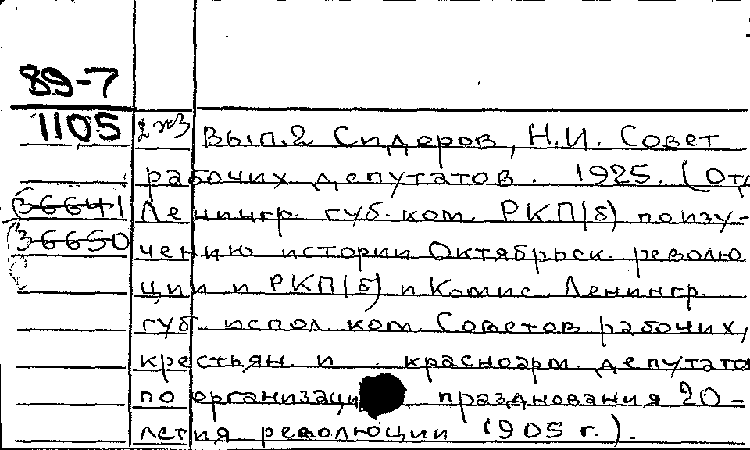 89-7
1105 2 жз Вып.2 Сидоров, Н.И. Совет
рабочих депутатов. 1925. (Отд
36641 Ленингр. губ. ком. РКП(б) по изу-
36650 чению истории Октябрьск. револю
ции и РКП(б) и Комис. Ленингр.
губ. испол. ком. Советов рабочих,
крестьян. и красноарм. депутато
по организаци празднования 20-
летия революции 1905 г.).